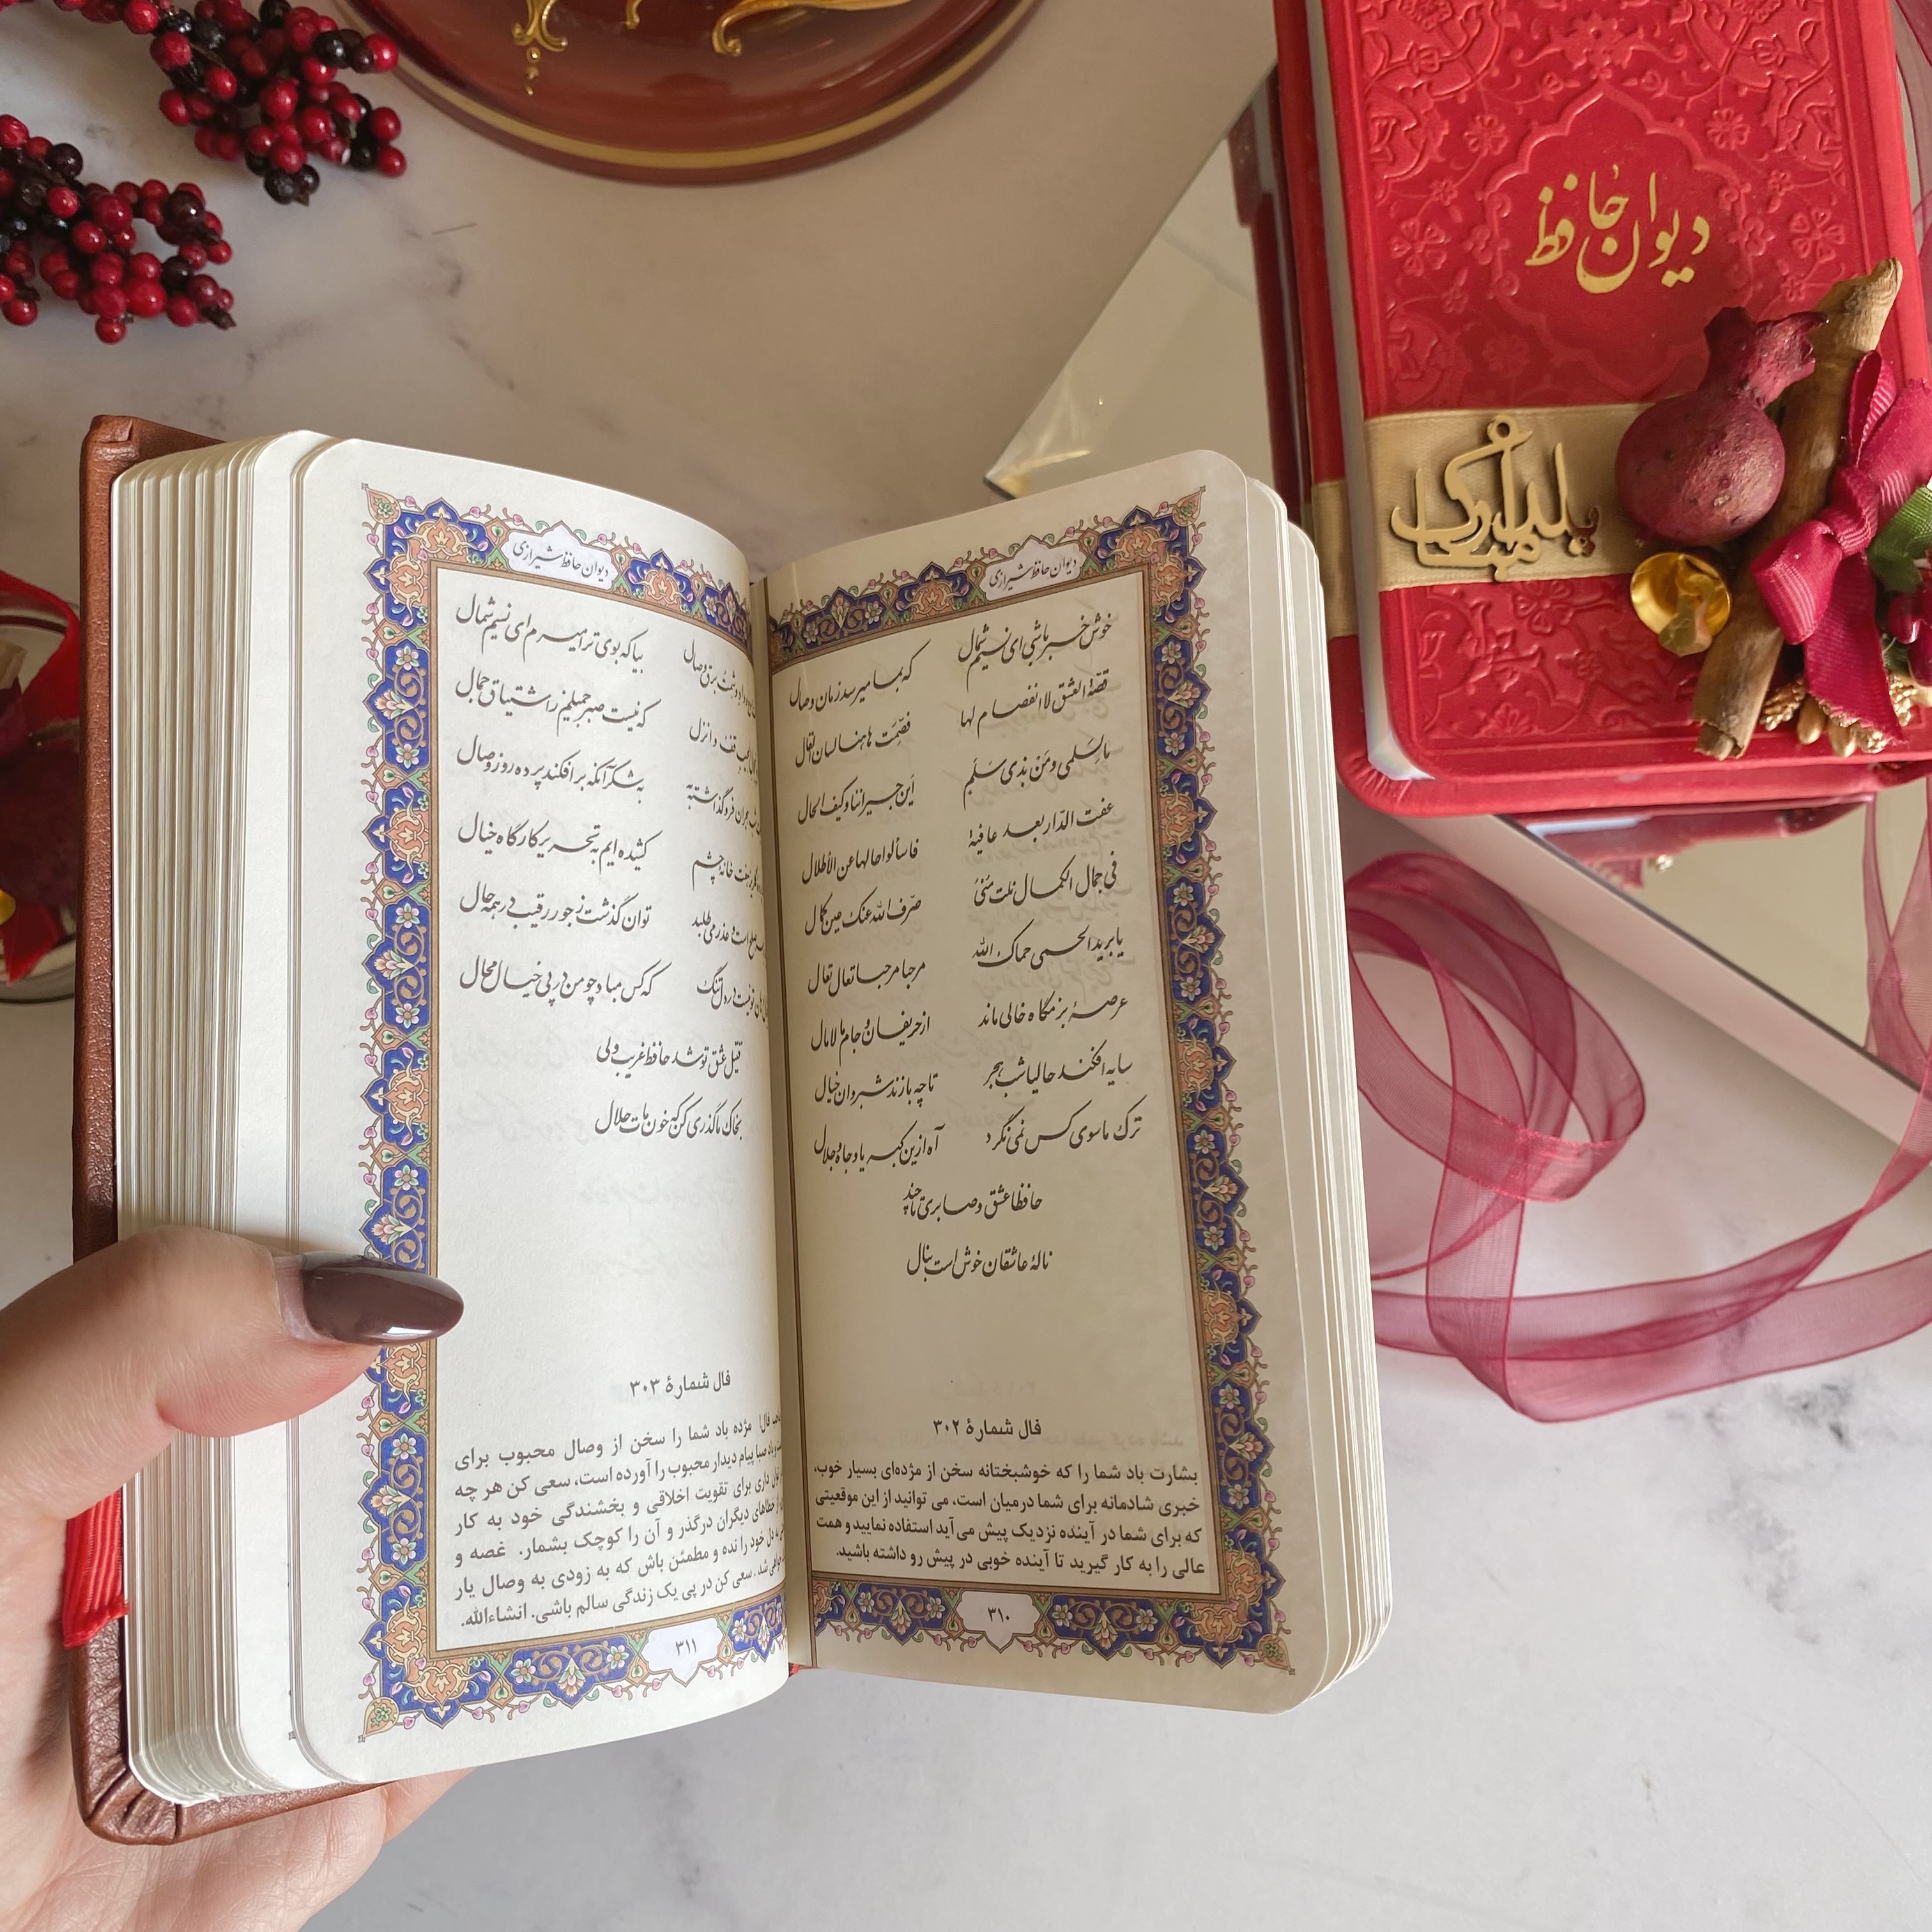 دیوان حافظ
یلدا مبارک
دیوان حافظ شیرازی
خوش خبر باشی ای نسیم شمال
که بما میرسد زمان وصال
قصّة العشق لا انفصام لها
فصّمت هاهنا لسان القال
ما لسلمی و من بذی سلم
این جیراننا و کیف الحال
عفت الدّار بعد عافیة
فاسألوا حالها عن الأطلال
فی جمال الکمال نلت منیً
صرّف الله عنک عین کمال
یا برید الحمی حماک الله
مرحبا مرحبا تعال تعال
عرصهٔ بزمگاه خالی ماند
از حریفان و جام مالامال
سایه افکند حالیا شب هجر
تا چه بازند شبروان خیال
ترک ما سوی کس نمی نگرد
آه ازین کبریا و جاه و جلال
حافظا عشق و صابری تا چند
نالهٔ عاشقان خوش است بنال
فال شمارهٔ ۳۰۲
بشارت باد شما را که خوشبختانه سخن از مژده‌ای بسیار خوب،
خبری شادمانه برای شما درمیان است، می توانید از این موقعیتی
که برای شما در آینده نزدیک پیش می‌آید استفاده نمایید و همت
عالی را به کار گیرید تا آینده خوبی در پیش رو داشته باشید.
۳۱۰
دیوان حافظ شیرازی
برق وصال
بیا که بوی ترا میرم ای نسیم شمال
قف و انزل
که نیست صبر جمیلم ز اشتیاق جمال
فرو گذاشته به
به شکر آنکه برافکند پرده روز وصال
خانهٔ چشم
کشیده ایم به تحریر کارگاه خیال
و عذر می طلبد
توان گذشت ز جور رقیب در همه حال
دل تنگ
که کس مباد چو من در پی خیال محال
قتیل عشق تو شد حافظ غریب ولی
بخاک ما گذری کن که خون مات حلال
فال شمارهٔ ۳۰۳
فال! مژده باد شما را سخن از وصال محبوب برای
باد صبا پیام دیدار محبوب را آورده است، سعی کن هر چه
داری برای تقویت اخلاقی و بخشندگی خود به کار
خطاهای دیگران درگذر و آن را کوچک بشمار. غصه و
دل خود را نده و مطمئن باش که به زودی به وصال یار
سعی کن در پی یک زندگی سالم باشی. انشاءالله.
۳۱۱